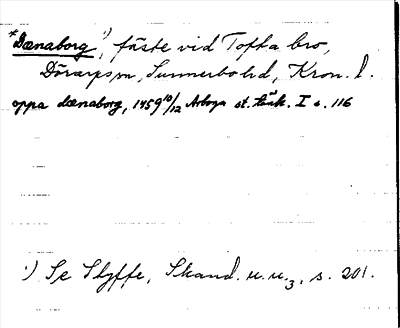 *Dænaborg¹), fäste vid Tofta bro,
Dörarps sn, Sunnerbo hd, Kron. l.
oppa dænaborg, 1459 10/12 Arboga st. tänk. I s. 116
¹) Se Styffe, Skand. u. u.3, s. 201.